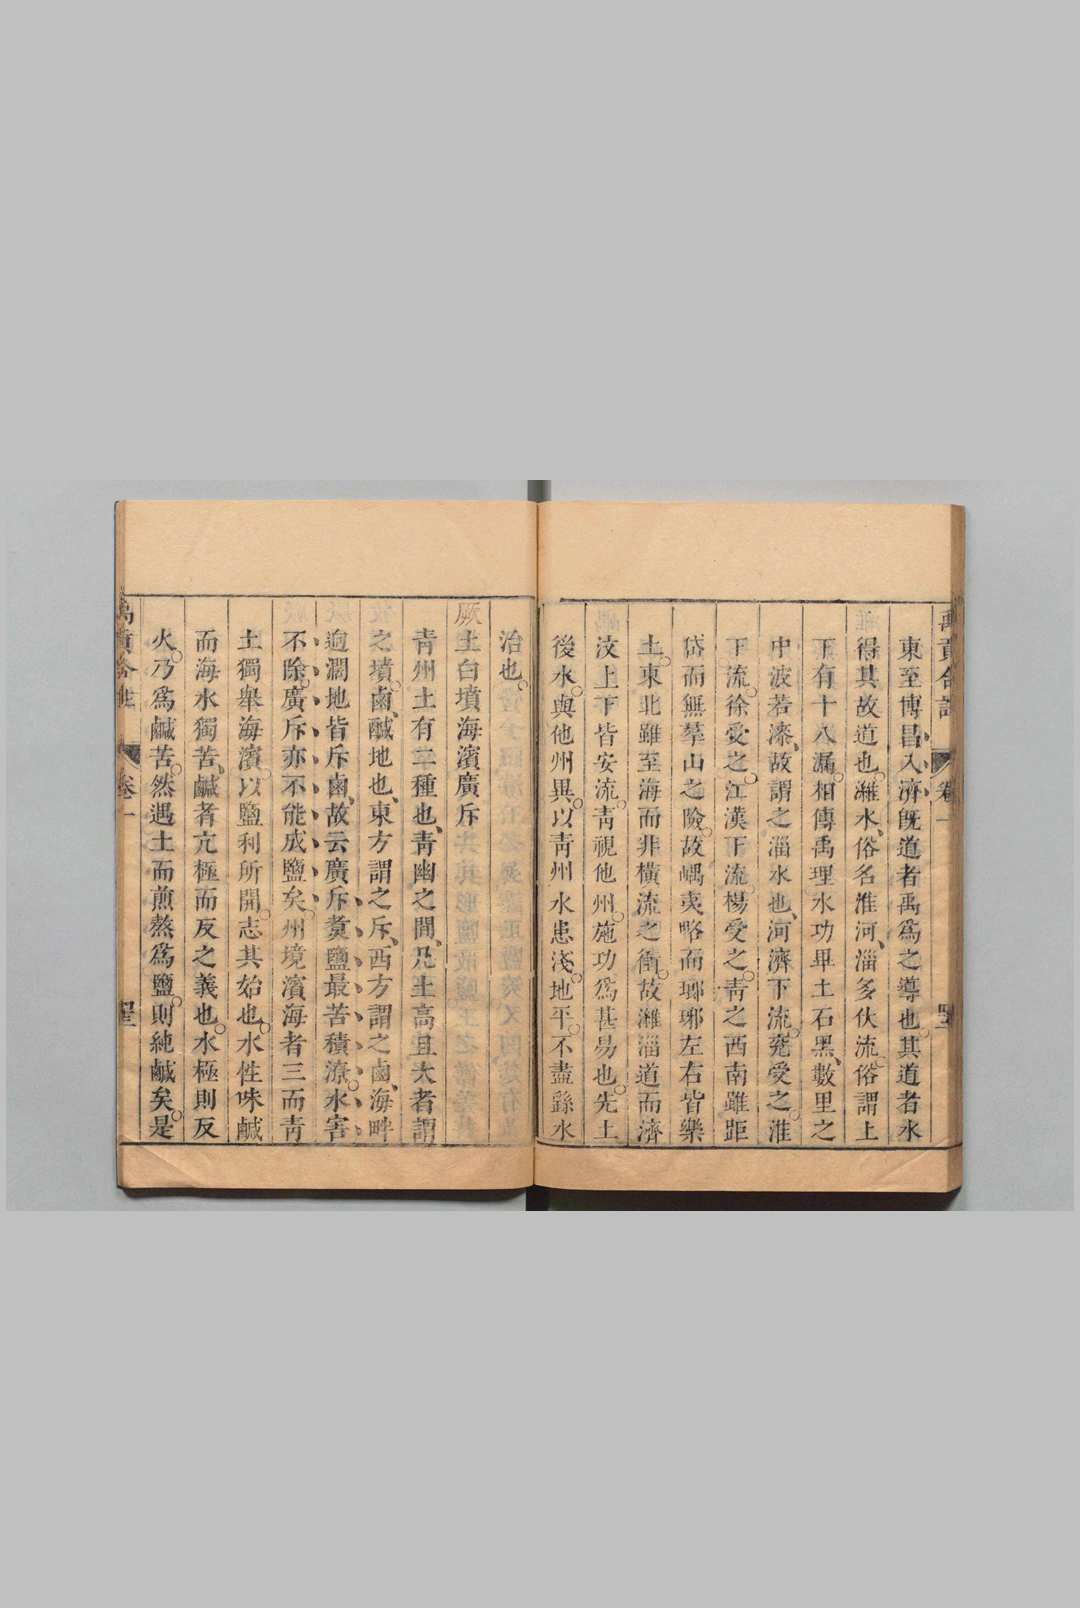 東至博昌入濟旣道者禹爲之導也其道者水
得其故道也濰水俗名淮河淄多伏流俗謂上
下有十八漏相傳禹理水功畢土石黑數里之
中波若漆故謂之淄水也河濟下流兗受之淮
下流徐受之江漢下流楊受之靑之西南雖距
岱而無羣山之險故嵎夷略而瑯琊左右皆樂
土東北雖至海而非橫流之衝故濰淄道而濟
汶上下皆安流靑視他州施功爲甚易也先土
後水與他州異以靑州水患淺地平不盡繇水
治也
厥土白墳海濱廣斥
靑州土有二種也靑幽之間凡土高且大者謂
之墳鹵鹹地也東方謂之斥西方謂之鹵海畔
逈濶地皆斥鹵故云廣斥煑鹽最苦積潦水害
不除廣斥亦不能成鹽矣州境濱海者三而靑
土獨舉海濱以鹽利所開志其始也水性味鹹
而海水獨苦鹹者亢極而反之義也水極則反
火乃爲鹹苦然遇土而煎熬爲鹽則純鹹矣是
卷一